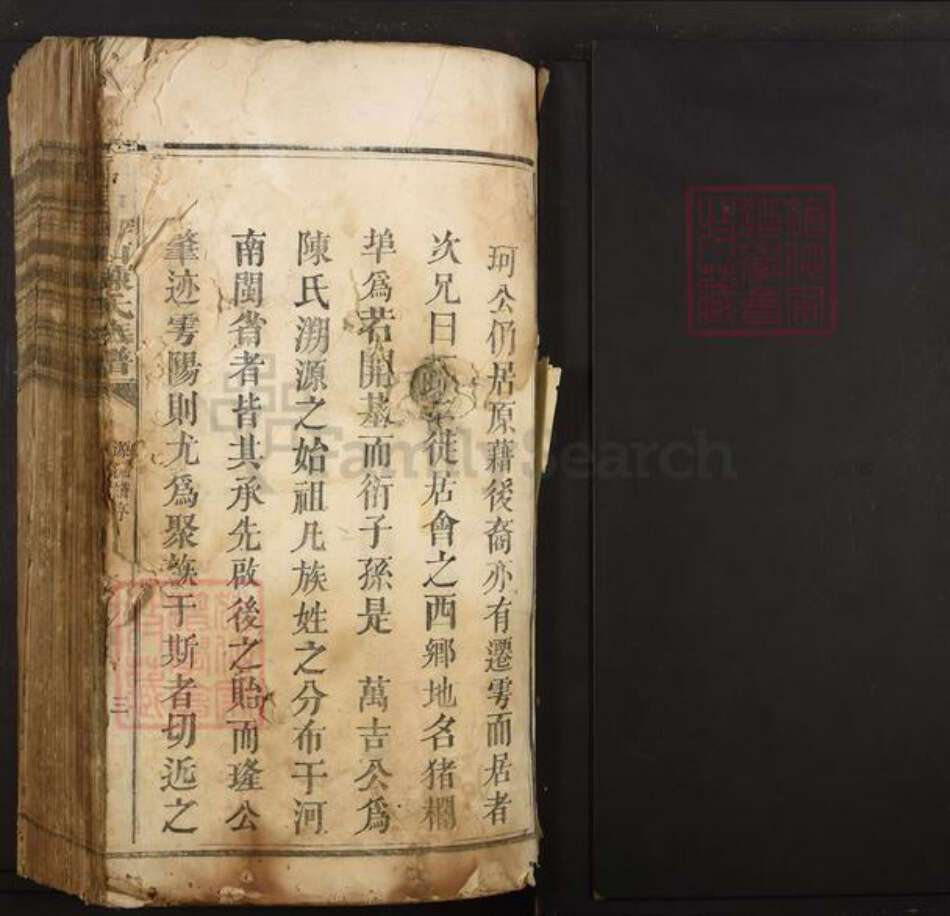 珂公仍居原藉後裔亦有遷雩而居者
次兄曰徒居會之西鄉地名猪欄
埠爲若開基而衍子孫是 萬吉公爲
陳氏溯源之始祖凡族姓之分布于河
南閩省者皆其承先啟後之貽而瑳公
肇迹雩陽則尤爲聚族于斯者切近之
陳氏族譜
三
FamilySearch